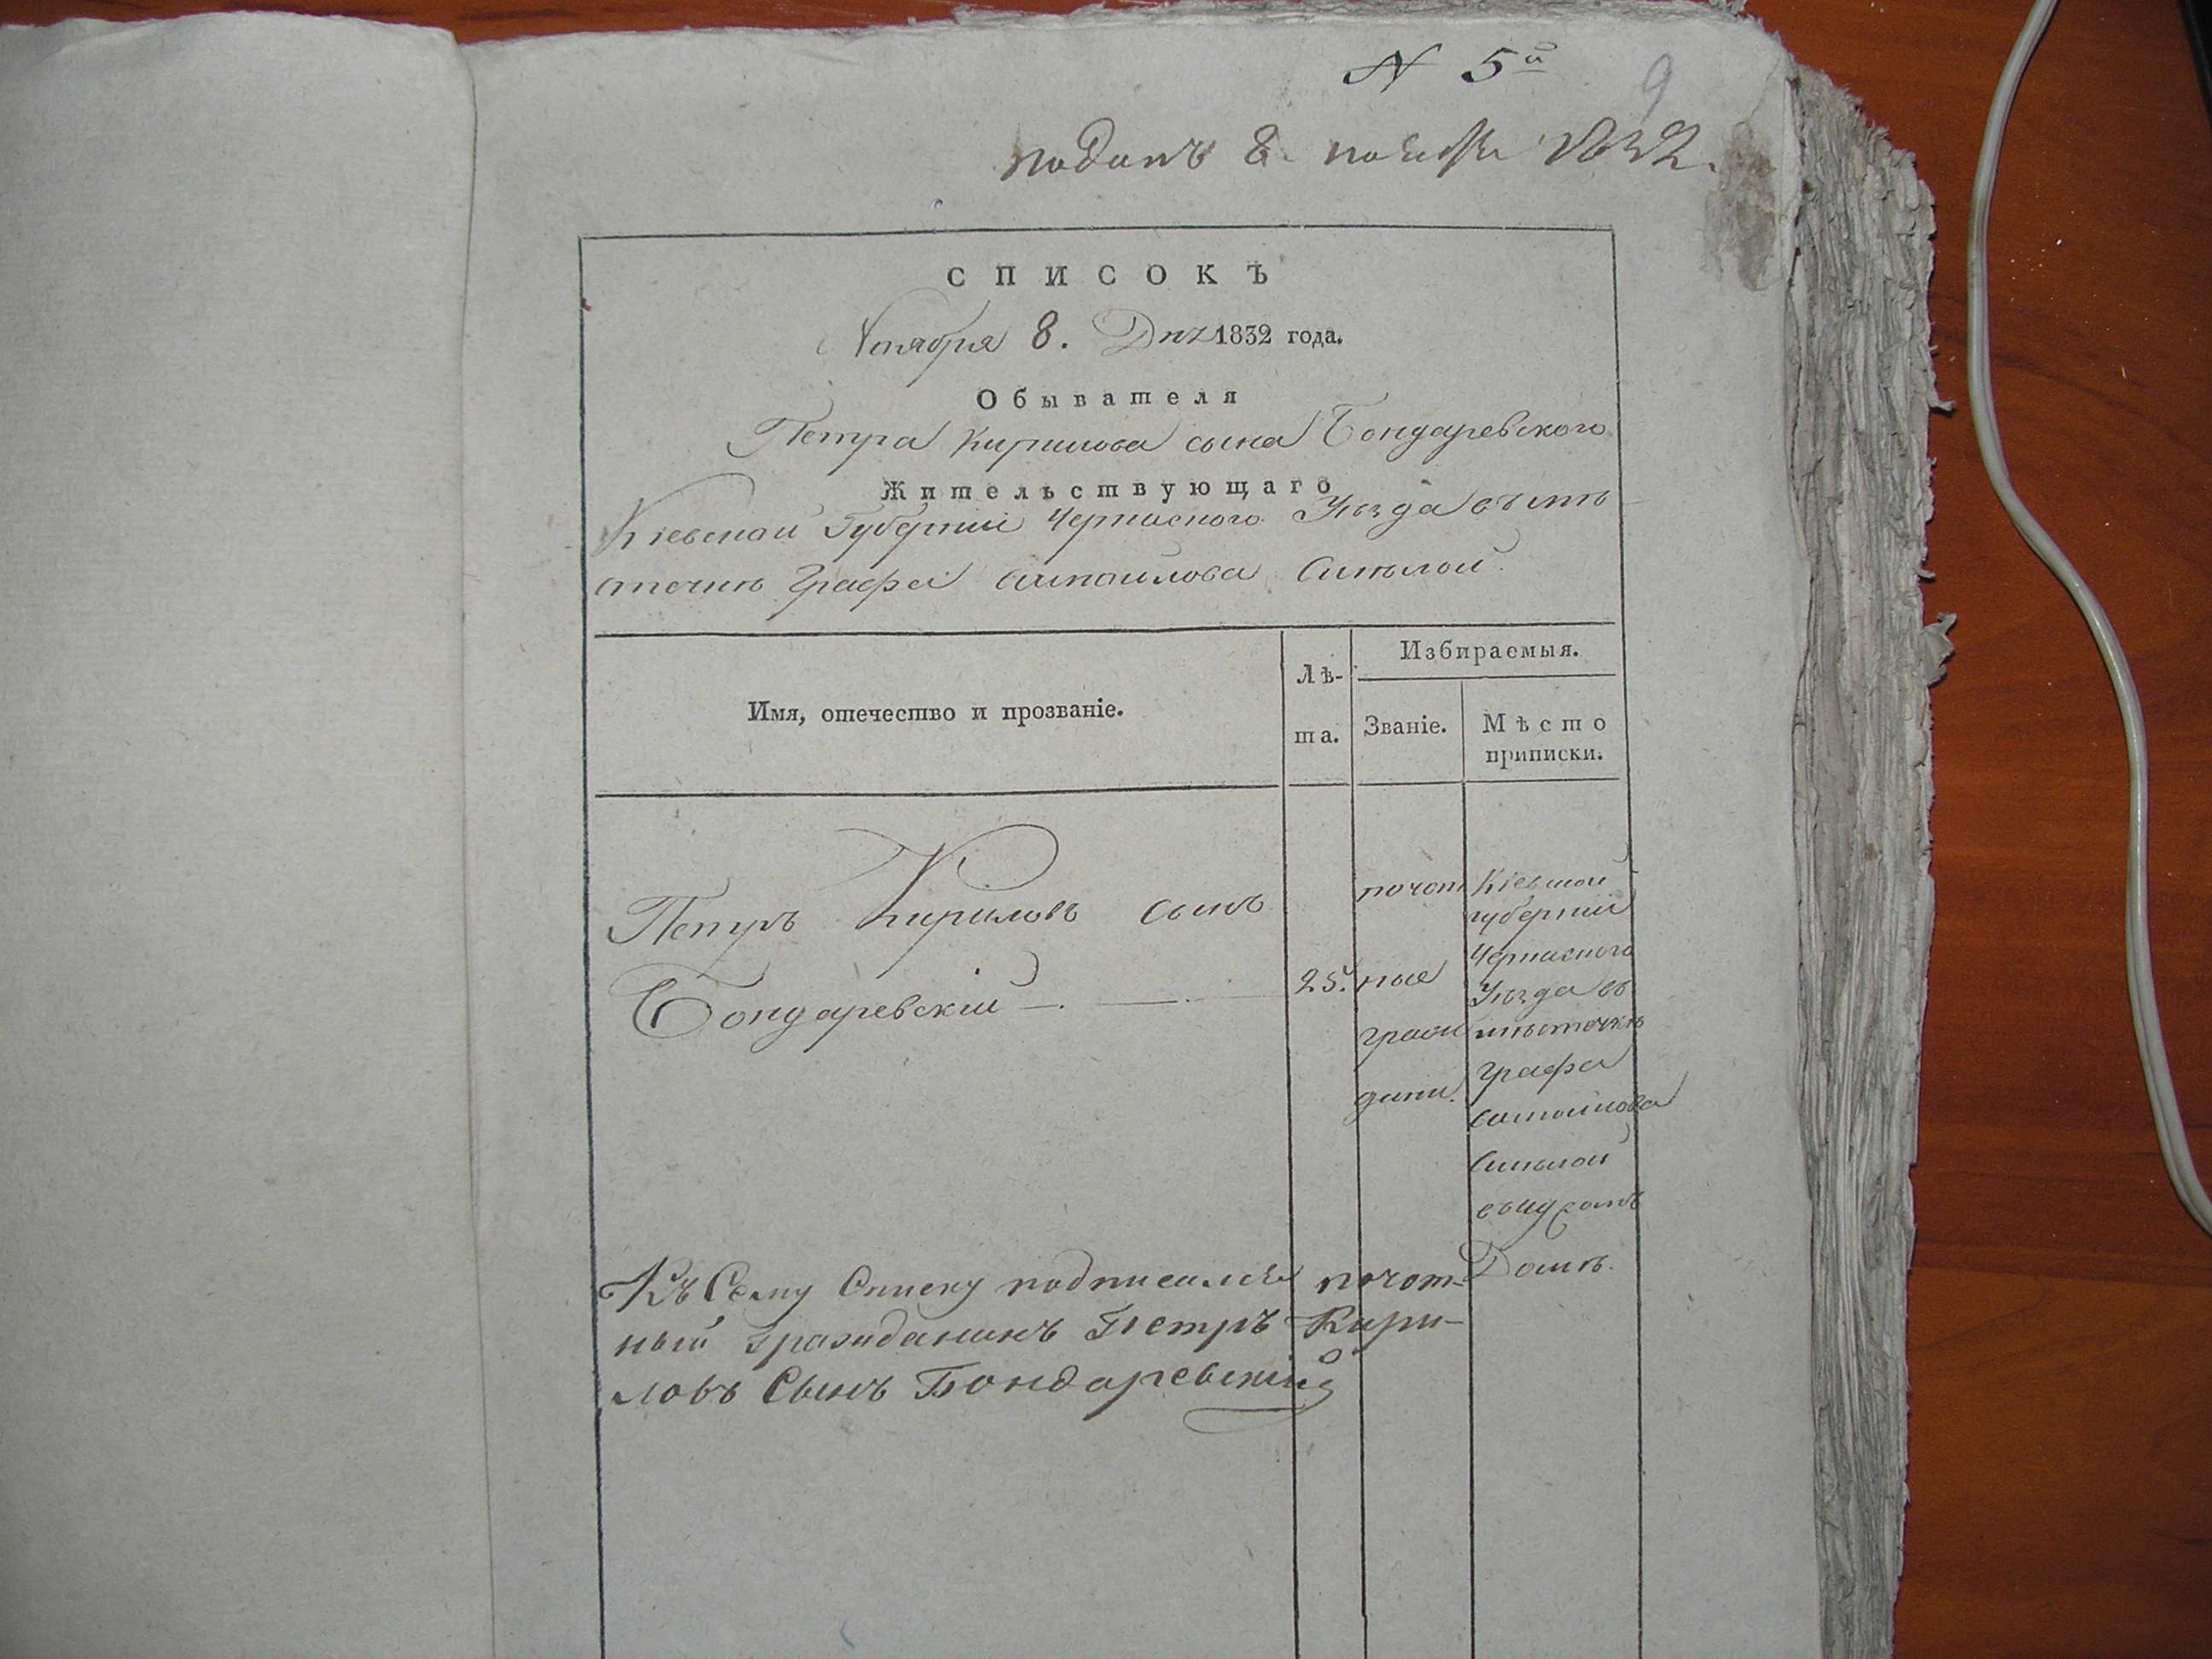 N 5й
9
поданъ 8. ноября 1832.
СПИСОКЪ
Ноября 8. Дня 1832 года.
Обывателя
Петра Кирилова сына Бондаревского
Жительствующаго
Кіевской Губерніи Черкаского Уѣзда въ мѣ
сточкѣ Графа Самойлова Смѣлой.
Имя, отечество и прозваніе.
Лѣ-
та.
Избираемыя.
Званіе.
Мѣсто
приписки.
Петръ Кириловъ сынъ
Бондаревскій
25.
почот
ные
граж
дани.
Кіевской
губерніи
Черкаского
Уѣзда въ
мѣсточкѣ
Графа
Самойлова
Смѣлой
Домѣ.
Къ Сему Списку подписался почот-
ный гражданинъ Петръ Кири-
ловъ Сынъ Бондаревскій